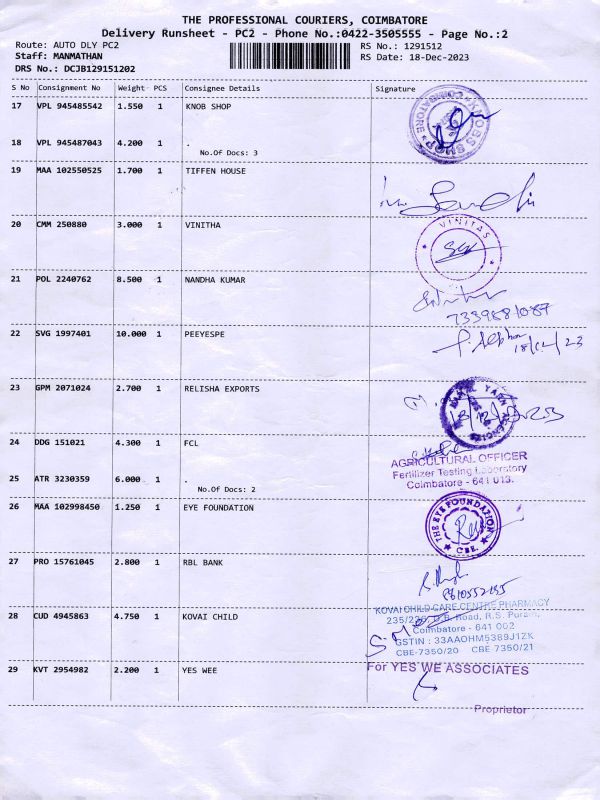 THE PROFESSIONAL COURIERS, COIMBATORE
Delivery Runsheet - PC2 - Phone No.:0422-3505555 - Page No.:2
Route: AUTO DLY PC2
RS No.: 1291512
Staff: MANMATHAN
RS Date: 18-Dec-2023
DRS No.: DCJB129151202
S No Consignment No Weight PCS Consignee Details Signature
17 VPL 945485542 1.550 1 KNOB SHOP
18 VPL 945487043 4.200 1 .
No.Of Docs: 3
19 MAA 102550525 1.700 1 TIFFEN HOUSE
20 CMM 250880 3.000 1 VINITHA
VINITAS
21 POL 2240762 8.500 1 NANDHA KUMAR
7339881087
22 SVG 1997401 10.000 1 PEEYESPE
18/12/23
23 GPM 2071024 2.700 1 RELISHA EXPORTS
24 DDG 151021 4.300 1 FCL
AGRICULTURAL OFFICER
Fertilizer Testing Laboratory
Coimbatore - 641 013.
25 ATR 3230359 6.000 1 .
No.Of Docs: 2
26 MAA 102998450 1.250 1 EYE FOUNDATION
THE EYE FOUNDATION
CBE.
27 PRO 15761045 2.800 1 RBL BANK
28 CUD 4945863 4.750 1 KOVAI CHILD
KOVAI CHILD CARE CENTRE PHARMACY
Road, R.S. Puram,
Coimbatore - 641 002
GSTIN : 33AAOHM5389J1ZK
CBE-7350/20 CBE-7350/21
29 KVT 2954982 2.200 1 YES WEE
For YES WE ASSOCIATES
Proprietor